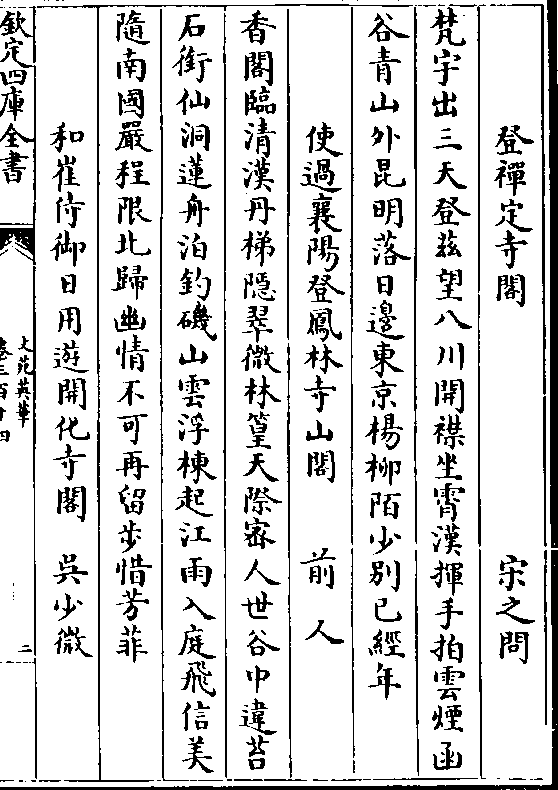 登禪定寺閣 宋之問
梵宇出三天登茲望八川開襟坐霄漢揮手拍雲煙函
谷青山外昆明落日邊東京楊柳陌少別已經年
使過襄陽登鳳林寺山閣 前人
香閣臨清漢丹梯隱翠微林篁天際密人世谷中違苔
石銜仙洞蓮舟泊釣磯山雲浮棟起江雨入庭飛信美
隨南國嚴程限北歸幽情不可再留步惜芳菲
和崔侍御日用遊開化寺閣 吳少微
欽定四庫全書
文苑英華
卷三百十四
二